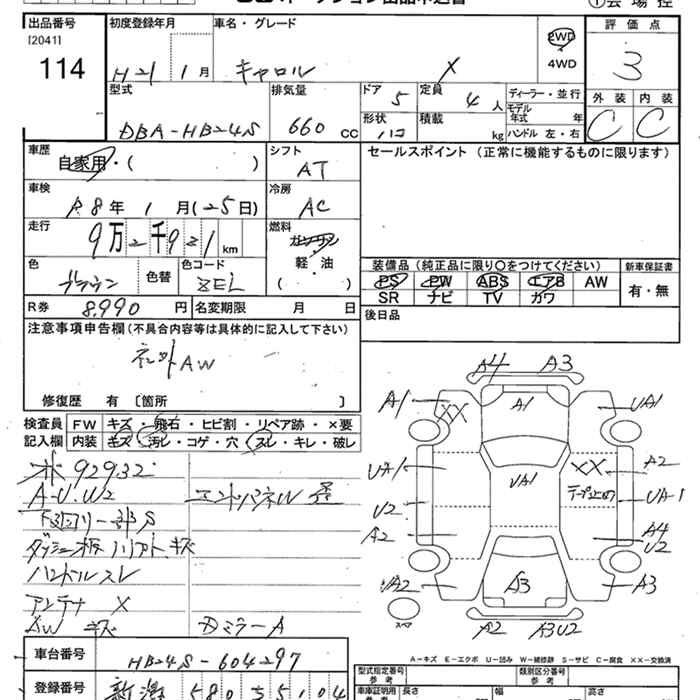 出品番号 [2041] 114
初度登録年月 H21 1月
車名・グレード キャロル X
2WD
4WD
評価点 3
外装 C 内装 C
型式 DBA-HB24S
排気量 660 CC
ドア 5 定員 4 人
形状 ハコ 積載 kg
ディーラー・並行
モデル年式 年
ハンドル 左・右
車歴 自家用・( )
シフト AT
セールスポイント(正常に機能するものに限ります)
車検 R8年 1月(25日)
冷房 AC
走行 9万2千921 km
燃料 ガソリン 軽・油 ( )
色 ブラウン 色替 色コード ZEL
装備品(純正品に限り○をつけてください) 新車保証書
PS PW ABS エアB AW
SR ナビ TV カワ 有・無
R券 8,990円 名変期限 月 日
後日品
注意事項申告欄(不具合内容等は具体的に記入して下さい)
AW
修復歴 有 〔箇所 〕
検査員記入欄 FW キズ・飛石・ヒビ割・リペア跡・×要
内装 キズ・汚レ・コゲ・穴・スレ・キレ・破レ
92932
A-U.W2
下回リ一部S
ハンドルスレ
アンテナ X
AW キズ
DミラーA
A4 A3
A1 XX A1 UA1
UA1 UA1 XX A2
テープ止め
U2 UA1
A2 A4 U2
UA2 A3 A3
スペア
A2 A3U2
A-キズ E-エクボ U-凹み W-補修跡 S-サビ C-腐食 XX-交換済
車台番号 HB24S-604297
型式指定番号 参考 類別区分番号 参考
登録番号 新潟 580 5104
車庫証明用 参考 長さ 幅 高さ